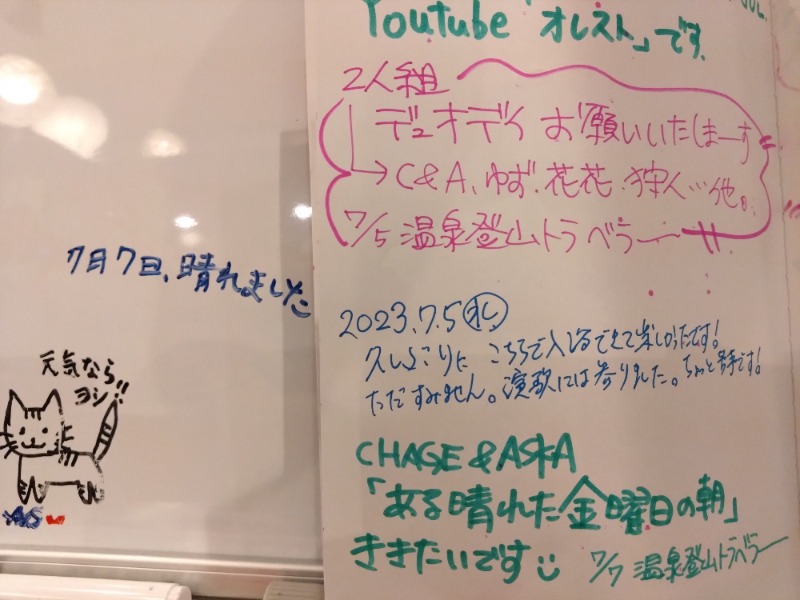 7月7日、晴れました
元気なら
ヨシ!!
JUL.
Youtube「オレスト」です
2人組
デュオデイ お願いいたしまーす
→C&A、ゆず、花花、狩人…他。
7/5 温泉登山トラベラー
2023.7.5㊌
久しぶりに こちらで入浴できて楽しかったです!
ただすみません。演歌には参りました。ちょっと苦手です!
CHAGE & ASKA
「ある晴れた金曜日の朝」
ききたいです
7/7 温泉登山トラベラー